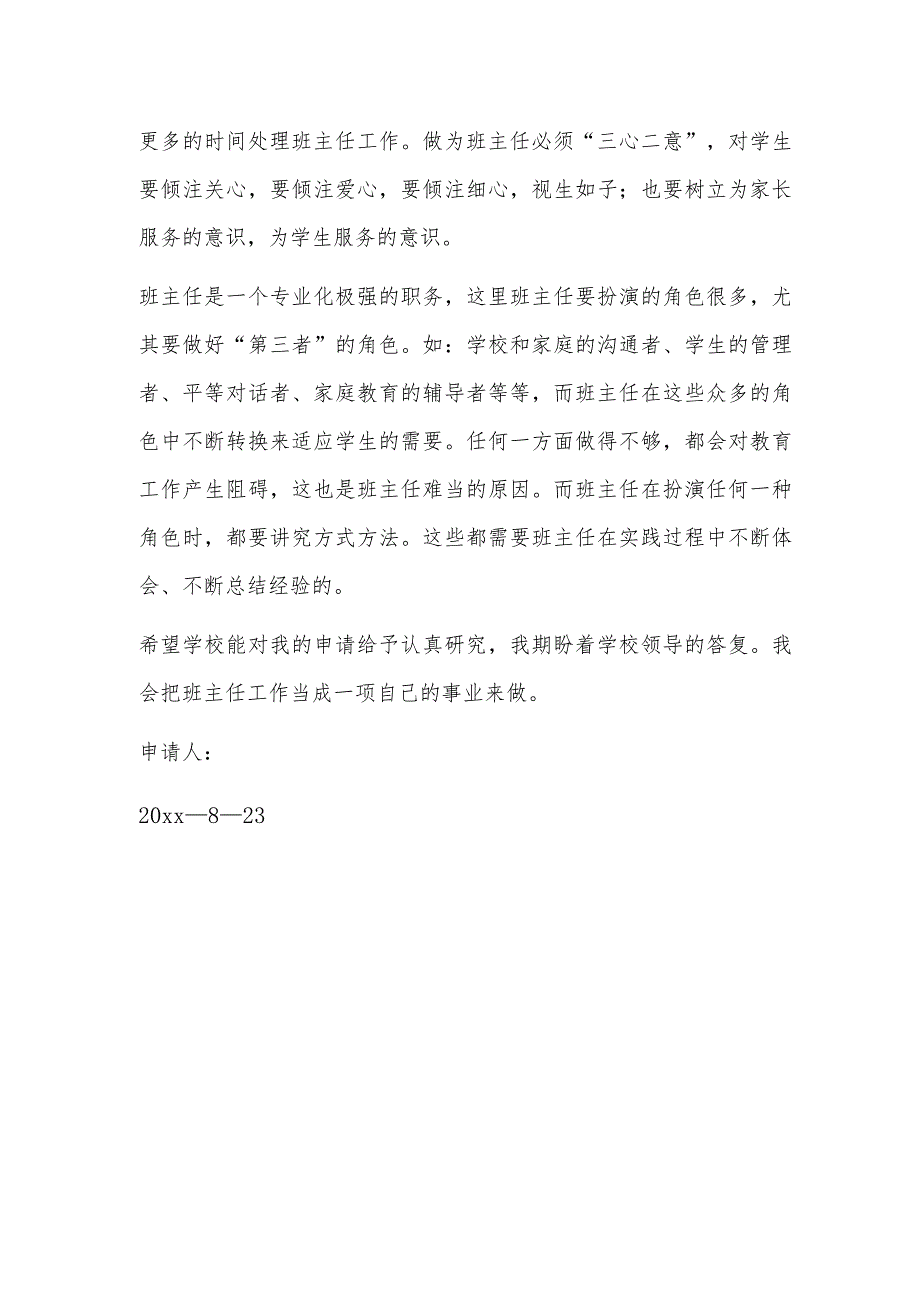 更多的时间处理班主任工作。做为班主任必须“三心二意”，对学生
要倾注关心，要倾注爱心，要倾注细心，视生如子；也要树立为家长
服务的意识，为学生服务的意识。
班主任是一个专业化极强的职务，这里班主任要扮演的角色很多，尤
其要做好“第三者”的角色。如：学校和家庭的沟通者、学生的管理
者、平等对话者、家庭教育的辅导者等等，而班主任在这些众多的角
色中不断转换来适应学生的需要。任何一方面做得不够，都会对教育
工作产生阻碍，这也是班主任难当的原因。而班主任在扮演任何一种
角色时，都要讲究方式方法。这些都需要班主任在实践过程中不断体
会、不断总结经验的。
希望学校能对我的申请给予认真研究，我期盼着学校领导的答复。我
会把班主任工作当成一项自己的事业来做。
申请人：
20xx—8—23